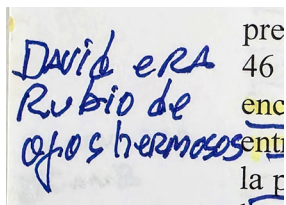 David eRA
Rubio de
ojos heRmosos
pre
46
enc
entr
la p